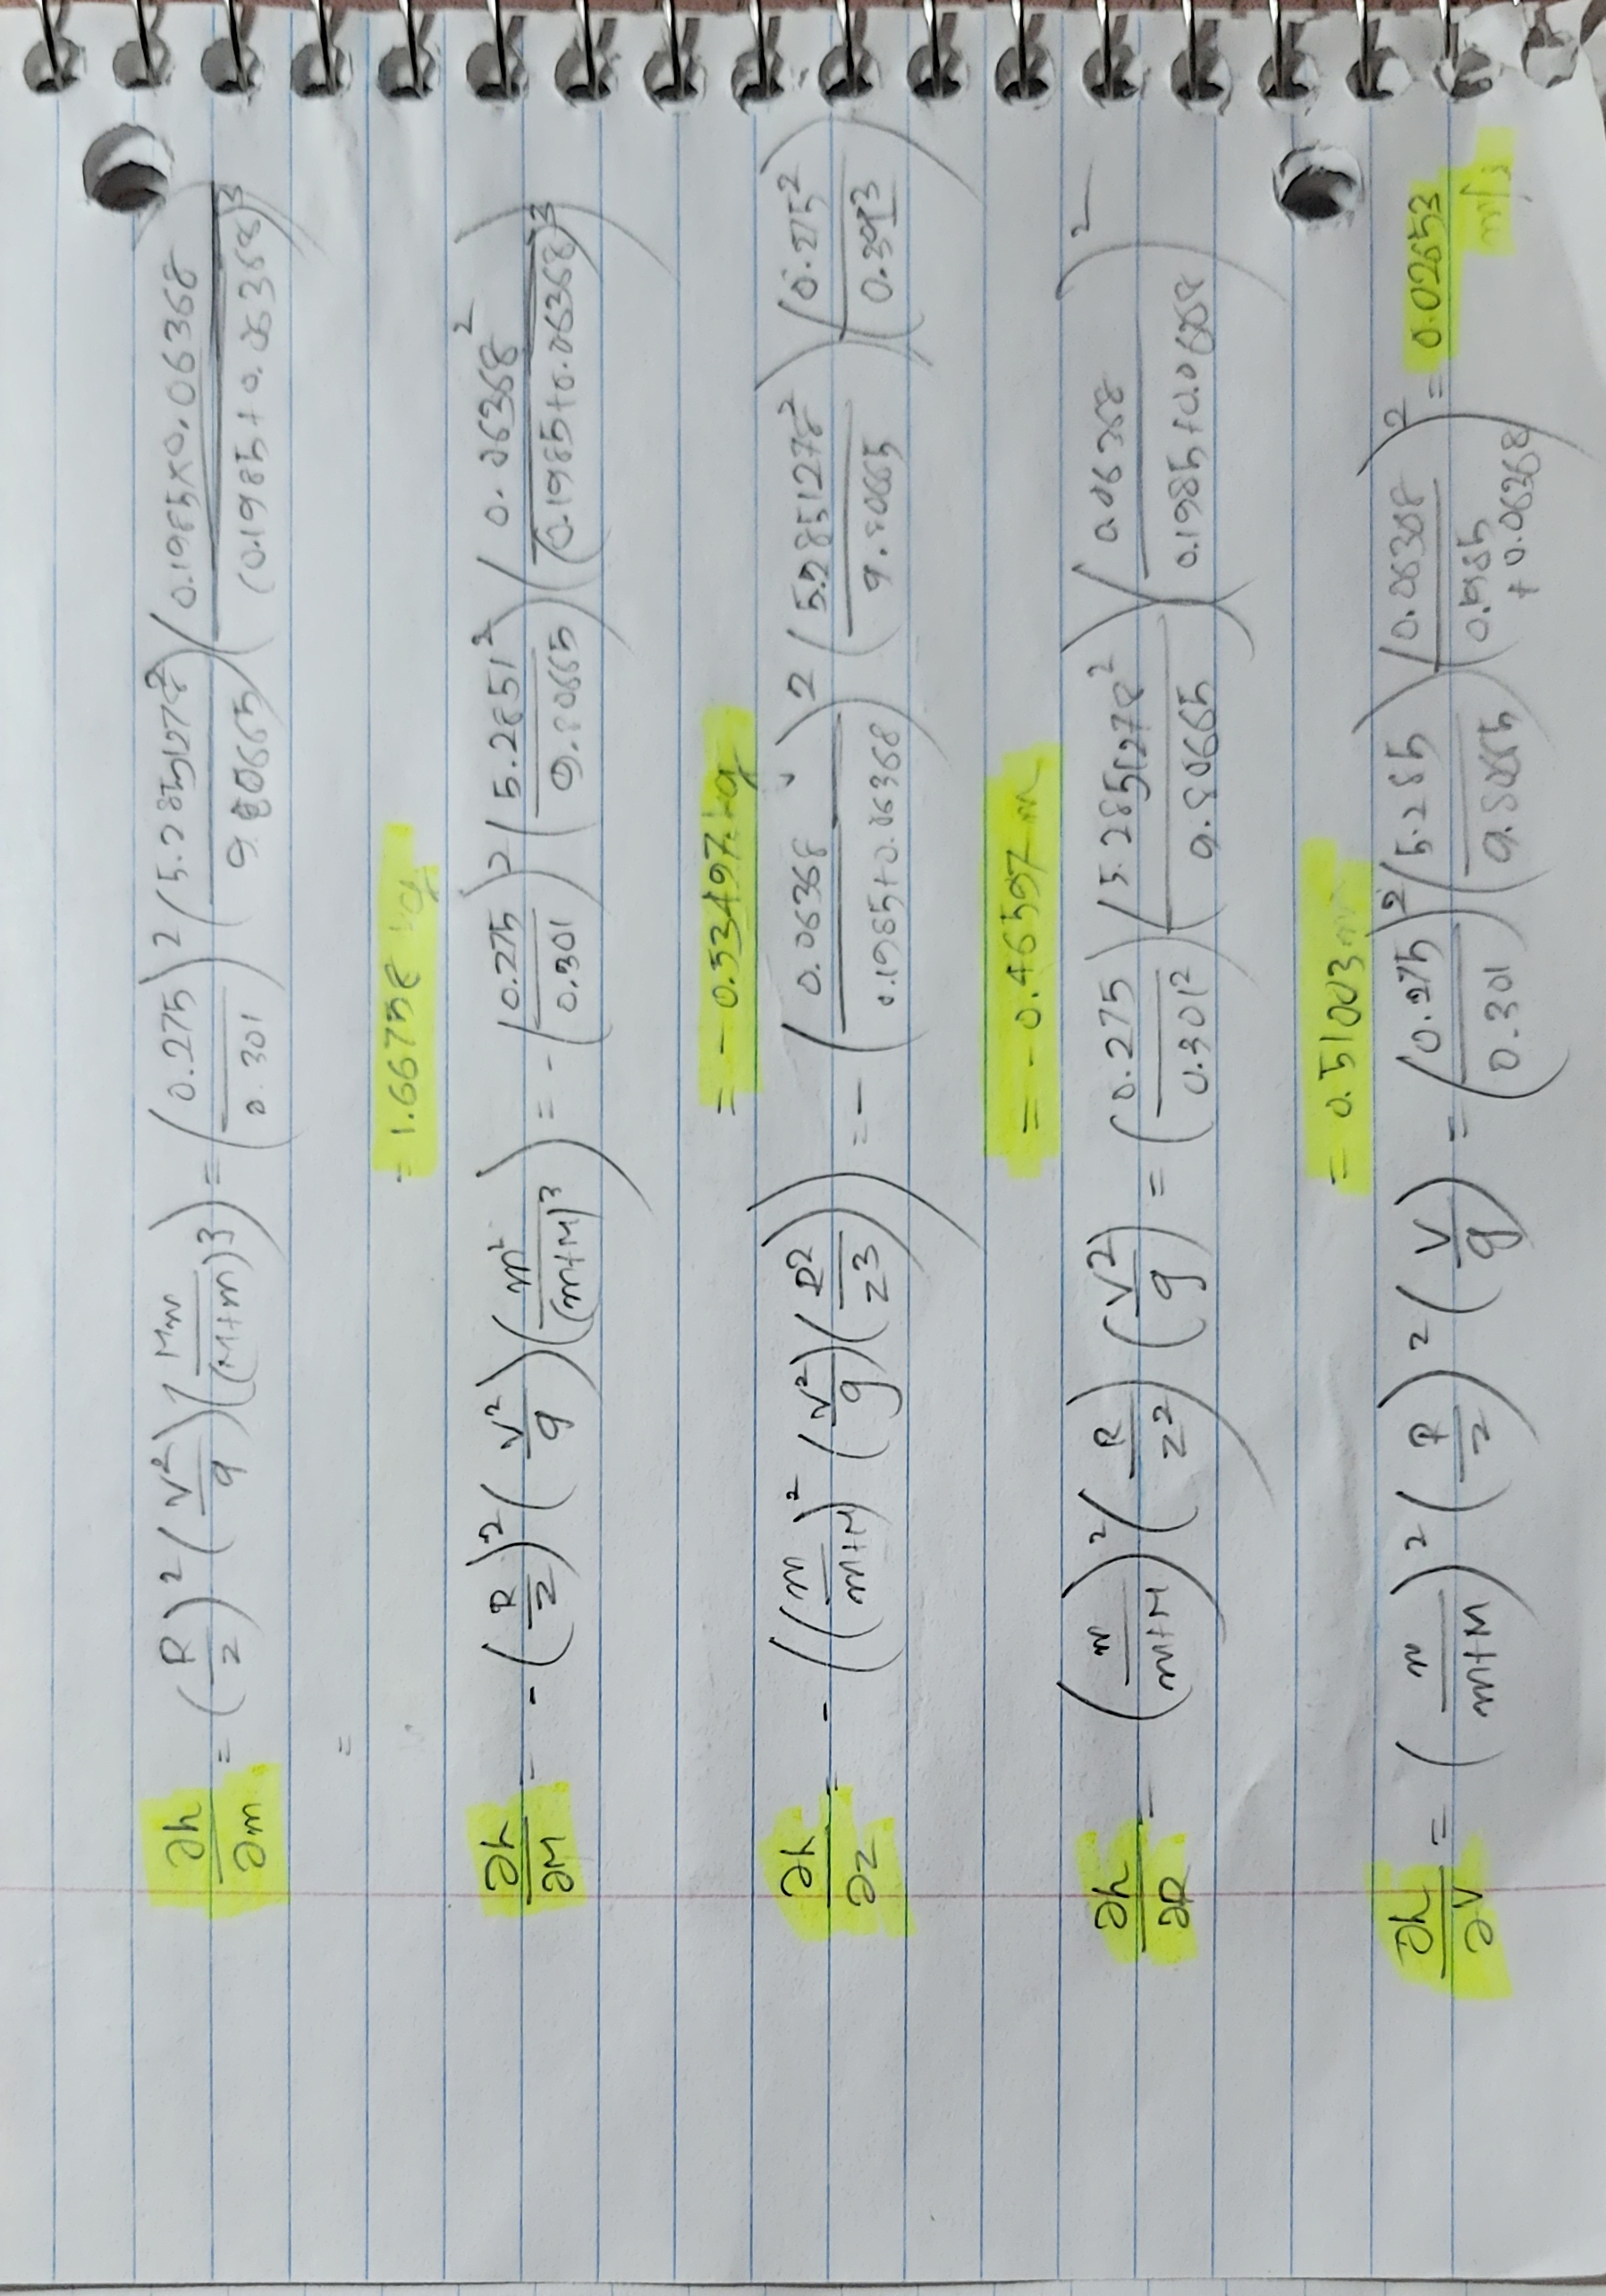 ∂h/∂m = (R/z)² (V²/g) (Mm/(M+m)³) = (0.275/0.301)² (5.2851278²/9.80665) (0.1985×0.06368/(0.1985+0.06368)³)
=
= 1.66758 kg
∂h/∂M = -(R/z)² (V²/g) (m²/(m+M)³) = -(0.275/0.301)² (5.2851²/9.80665) (0.06368²/(0.1985+0.06368)³)
= -0.53497 kg
∂h/∂z = -((m/m+M)² (V²/g) (R²/z³)) = -(0.06368/0.1985+0.06368)² (5.2851278²/9.80665) (0.275²/0.301³)
= -0.46597 m
∂h/∂R = (m/m+M)² (R/z²) (V²/g) = (0.275/0.301²) (5.2851278²/9.80665) (0.06368/0.1985+0.06368)²
= 0.51003 m
∂h/∂V = (m/m+M)² (R/z)² (V/g) = (0.275/0.301)² (5.285/9.80665) (0.06368/0.1985+0.06368)² = 0.02653 m/s